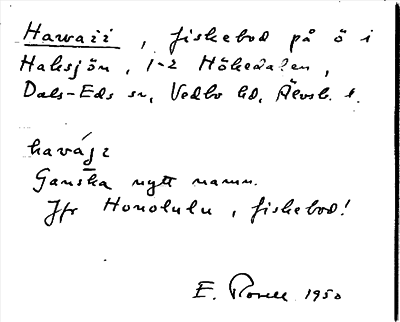 Hawaii, fiskebod på ö i
Haksjön, 1-2 Hökeda?en,
Dals-Eds sn, Vedbo hd, Älvsb. l.
havájı
Ganska nytt namn.
Jfr Honolulu, fiskebod!
E. 1950